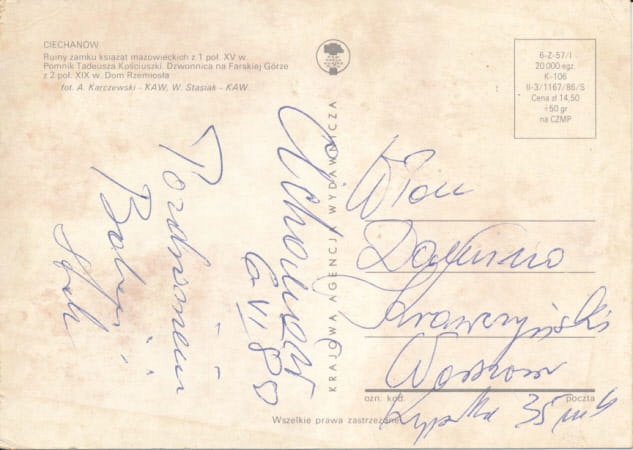 CIECHANÓW
Ruiny zamku książąt mazowieckich z 1 poł. XV w.
Pomnik Tadeusza Kościuszki. Dzwonnica na Farskiej Górze
z 2 poł. XIX w. Dom Rzemiosła
fot. A. Karczewski - KAW, W. Stasiak - KAW
6-Z-57/I
20 000 egz.
K-106
II-3/1167/86/S
Cena zł 14,50
+50 gr
na CZMP
KRAJOWA AGENCJA WYDAWNICZA
Ciechanów
6 VI 89
Pozdrowienia
Dariusz
Krawczyński
Warszawa
35 m 6
ozn. kod.
poczta
Wszelkie prawa zastrzeżone